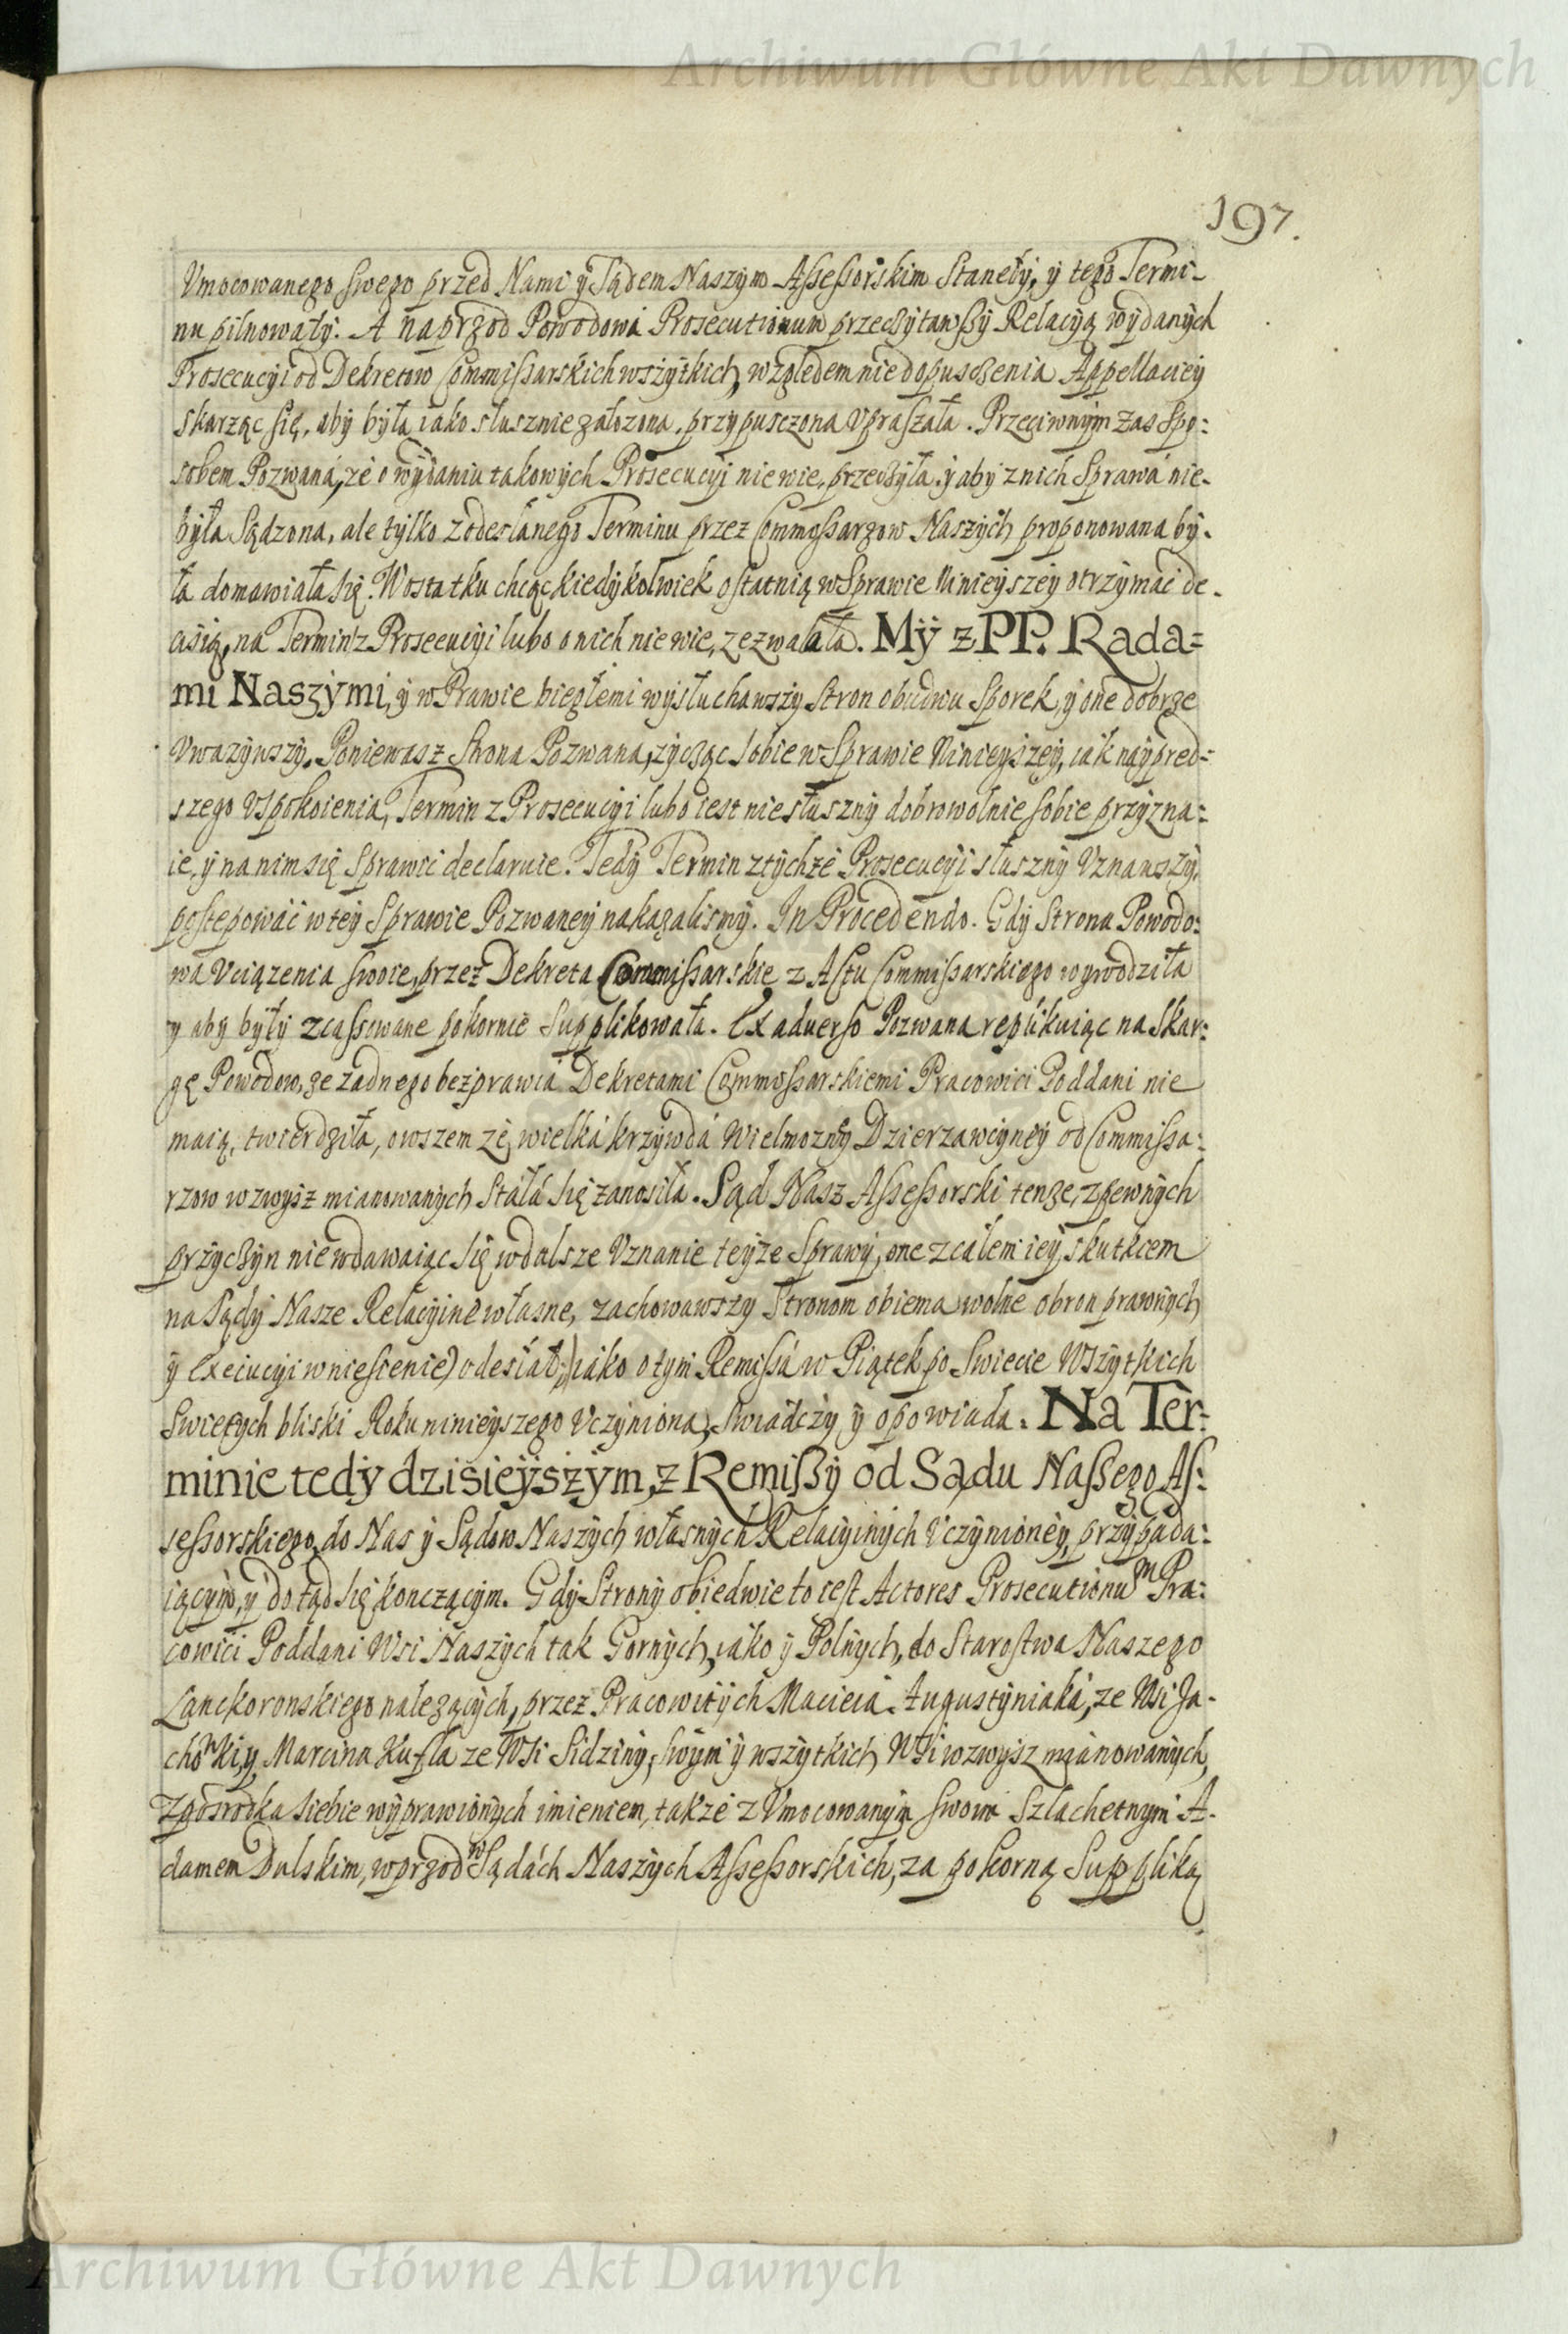 Archiwum Główne Akt Dawnych
197.
Vmocowanego swego przed Nami y Sądem Naszym Assessorskim Stanęły, y tego Termi-
nu pilnowały. A naprzod Powodowa Prosecutionum przeczytawszy Relacyą wydanych
Prosecucyi od Dekretow Commissarskich wszytkich, względem niedopusczenia Appellaciey
skarząc się, aby była iako słusznie załozona, przypusczona Vpraszała. Przeciwnym zas Spo:
sobem Pozwana, ze o wydaniu takowych Prosecucyi nie wie, przeczyła, y aby z nich Sprawa nie-
była Sądzona, ale tylko z odesłanego Terminu przez Commossarzow Naszych proponowana by-
ła domawiała się. W ostatku chcąc kiedykolwiek ostatnią w Sprawie Ninieyszey otrzymać de-
cisią, na Termin z Prosecucyi lubo o nich nie wie, zezwalała. My z PP. Rada=
mi Naszymi, y w Prawie biegłemi wysłuchawszy stron obudwu Sporek, y one dobrze
Vwazywszy. Poniewasz Strona Pozwana, zycząc sobie w Sprawie Ninieyszey, iak naypred=
szego Vspokoienia, Termin z Prosecucyi lubo iest niesłuszny dobrowolnie sobie przyzna=
ie, y na nim się Sprawić declaruie. Tedy Termin z tychże Prosecucyi słuszny Vznawszy,
postępować w tey Sprawie Pozwaney nakazalismy. In Procedendo. Gdy Strona Powodo:
wa Vciązenia swoie, przez Dekreta Commissarskie z Actu Commissarskiego wywodziła
y aby były zcassowane pokornie Supplikowała. Ex adverso Pozwana replikuiąc na Skar:
gę Powodow, ze zadnego bezprawia Dekretami Commossarskiemi Pracowici Poddani nie
maią, twierdziła, owszem ze wielka krzywda Wielmozney Dzierzawcyney od Commissa:
rzow wzwysz mianowanych Stała się zanosiła. Sąd Nasz Assessorski tenze, z pewnych
przyczyn nie wdawaiąc się w dalsze Vznanie teyze Sprawy, one z całem iey skutkiem
na Sądy Nasze Relacyine własne, zachowawszy Stronom obiema wolne obron prawnych
y Execucyi wniesienie) odesłał; iako o tym Remissa w Piątek po Swiecie Wszytkich
Swietych bliski Roku ninieyszego Vczyniona, swiadczy y opowiada. Na Ter:
minie tedy dzisieyszym, z Remissy od Sądu Naszego As:
sessorskiego, do Nas y Sądow Naszych własnych Relacyinych Vczynioney, przypada:
iącym, y dotąd się konczącym. Gdy Strony obiedwie to iest Actores Prosecutionum Pra:
cowici Poddani Wsi Naszych tak Gornych, iako y Polnych, do Starostwa Naszego
Lanckoronskiego nalezących, przez Pracowitych Macieia Augustyniaka, ze Wsi Ja-
chowki, y Marcina Kusla ze Wsi Sidziny, swym y wszytkich Wsi wzwysz mianowanych,
Zposrodka siebie wyprawionych imieniem, takze z Vmocowanym swoim Szlachetnym A-
damem Dulskim, wprzod w Sądach Naszych Assessorskich, za pokorną Suppliką
Archiwum Główne Akt Dawnych